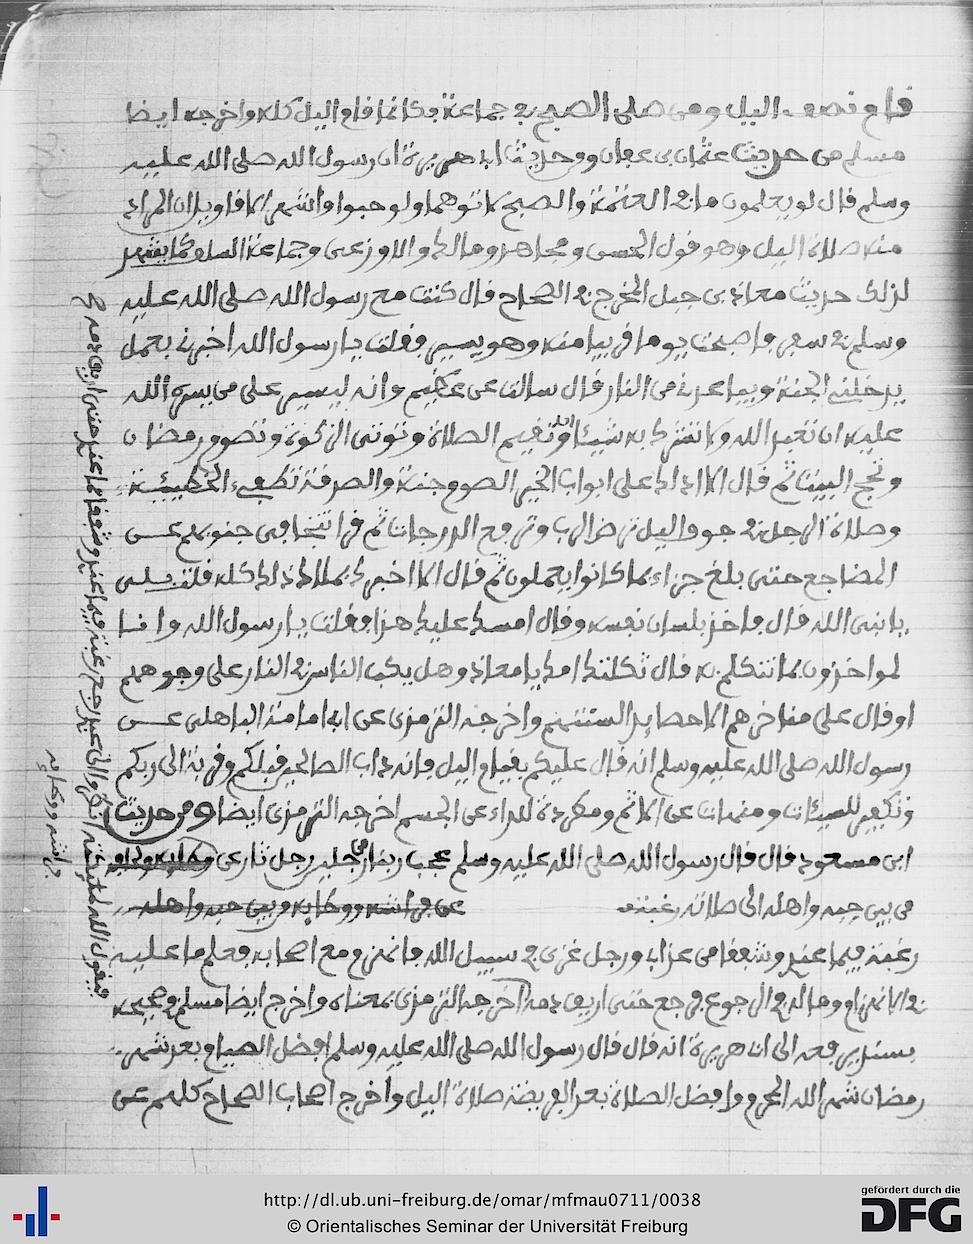 قام نصف اليل ومن صلى الصبح في جماعة فكانما قام اليل كله واخرجه ايضا
مسلم من حديث عثمان بن عفان ووحديث ابي هريرة ان رسول الله صلى الله عليه
وسلم قال لو يعلمون ما في العتمة والصبح لاتوهما ولو حبوا واشهر الاقاويل ان المراد
منه صلاة اليل وهو قول الحسن ومجاهد ومالك والاوزعي وجماعة السلف كما يشهد
لذلك حديث معاذ بن جبل المخرج في الصحاح قال كنت مع رسول الله صلى الله عليه
وسلم في سفر فاصبحت يوما قريبا منه وهو يسير فقلت يا رسول الله اخبرني بعمل
يدخلني الجنة ويباعدني من النار قال سالت عن عظيم وانه ليسير على من يسره الله
عليه ان تعبد الله ولا تشرك به شيئا وتقيم الصلاة وتوتي الزكوة وتصوم رمضان
وتحج البيت ثم قال الا ادلك على ابواب الخير الصوم جنة والصدقة تطفيء الخطيئة
وصلاة الرجل في جوف اليل ترض الرب وترفع الدرجات ثم قرا تتجافى جنوبهم عن
المضاجع حتى بلغ جزاء بما كانوا يعملون ثم قال الا اخبرك بملاك ذلك كله قلت بلى
يا نبي الله قال فاخذ بلسان نفسه وقال امسك عليك هذا فقلت يا رسول الله وانا
لمواخذون بما نتكلم به قال ثكلتك امك يا معاذ وهل يكب الناس في النار على وجوههم
او قال على مناخرهم الا حصايد السنتهم واخرجه الترمذي عن ابي امامة الباهلي عن
رسول الله صلى الله عليه وسلم انه قال عليكم بقيام اليل فانه داب الصالحين قبلكم وقربة الى ربكم
وتكفير للسيئات ومنهات عن الاثم ومطردة للداء عن الجسم اخرجه الترمذي ايضا ومن حديث
ابن مسعود قال قال رسول الله صلى الله عليه وسلم عجب ربنا من رجلين رجل ثار عن وطايه ولحافه
من بين حبه واهله الى صلاته رغبة
رغبة فيما عندي وشفقا من عذابي ورجل غزى في سبيل الله فانهزم مع اصحابه فعلم ما عليه
في الانهزام وما له في الرجوع فرجع حتى اريق دمه اخرجه الترمذي بمعناه واخرج ايضا مسلم في صحيحه
بسند يرفعه الى ابي هريرة انه قال قال رسول الله صلى الله عليه وسلم افضل الصيام بعد شهر
رمضان شهر الله المحرم وافضل الصلاة بعد الفريضة صلاة اليل واخرج اصحاب الصحاح كلهم عن
فيقول الله لملائكته انظروا الى عبدي رجع رغبة فيما عندي وشفقا مما عندي حتى اريق دمه
http://dl.ub.uni-freiburg.de/omar/mfmau0711/0038
© Orientalisches Seminar der Universität Freiburg
gefördert durch die
DFG